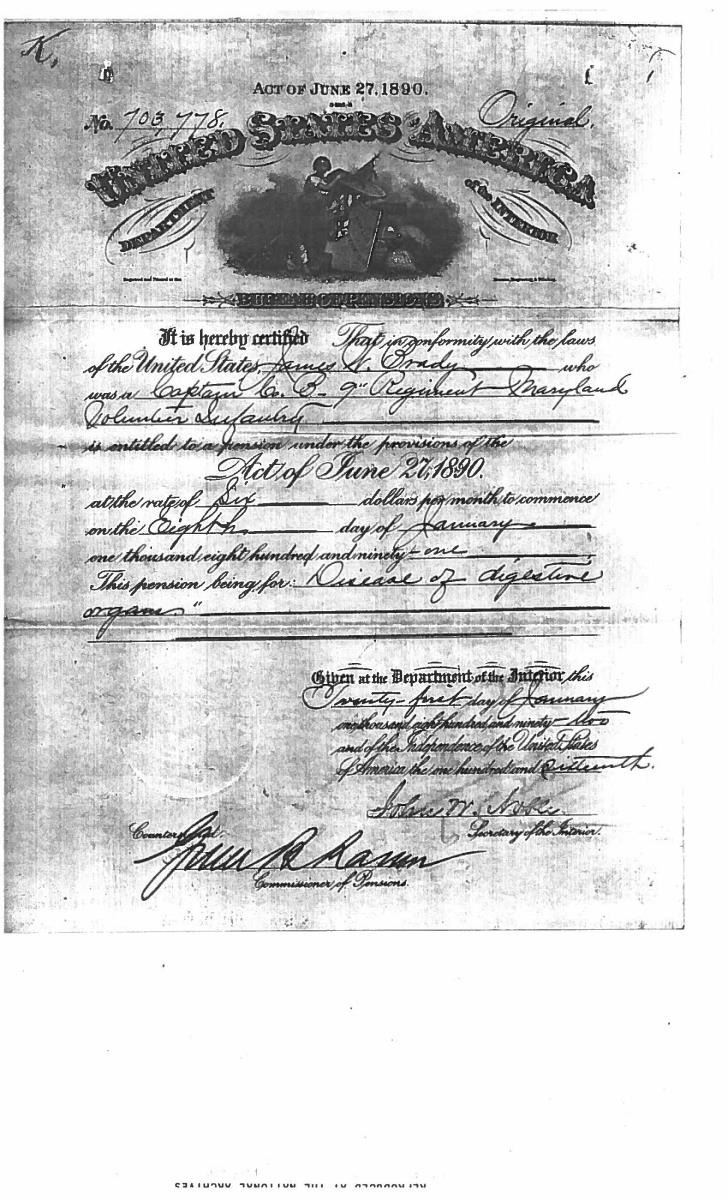 K,
ACT OF JUNE 27, 1890.
No. 703,778.
Original.
UNITED STATES OF AMERICA
DEPARTMENT of the INTERIOR
BUREAU OF PENSIONS
It is hereby certified That in conformity with the laws
of the United States, James W. Brady who
was a Captain Co. B 9" Regiment Maryland
Volunteer Infantry
is entitled to a pension under the provisions of the
Act of June 27, 1890.
at the rate of Six dollars per month to commence
on the Eighth day of January
one thousand eight hundred and ninety-one
This pension being for: Disease of digestive
organs"
Given at the Department of the Interior, this
Twenty-first day of January
one thousand eight hundred and ninety-two
and of the Independence of the United States
of America the one hundred and sixteenth.
John W. Noble.
Secretary of the Interior.
Countersigned:
Commissioner of Pensions.
REPRODUCED AT THE NATIONAL ARCHIVES